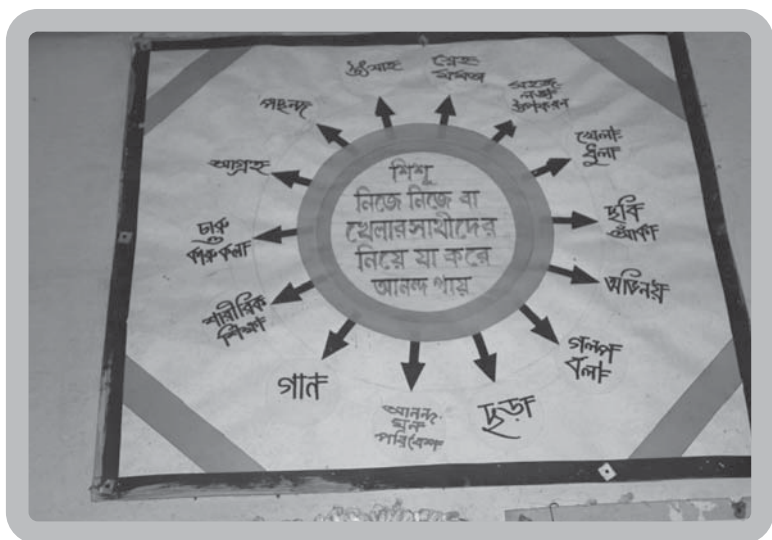 শিশু
নিজে নিজে বা
খেলার সাথীদের
নিয়ে যা করে
আনন্দ পায়
উৎসাহ
স্নেহ
মমতা
সহজ
লভ্য
উপকরণ
খেলা
ধুলা
ছবি
আঁকা
অভিনয়
গল্প
বলা
ছড়া
আনন্দ
ঘন
পরিবেশ
গান
শারীরিক
শিক্ষা
চারু
ও
কারুকলা
আগ্রহ
পছন্দ